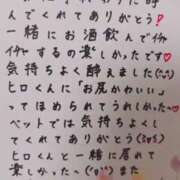 んでくれてありがとう!
一緒にお酒飲んでイチャ
イチャするの楽しかったです♡
気持ちよく酔えました(^^)
ヒロくんに「お尻かわいい」
ってほめられてうれしかった~♡
ベットでは気持ちよくし
てくれてありがとう(3♡5)
ヒロくんと一緒に居れて
楽しかった~(^o^)また